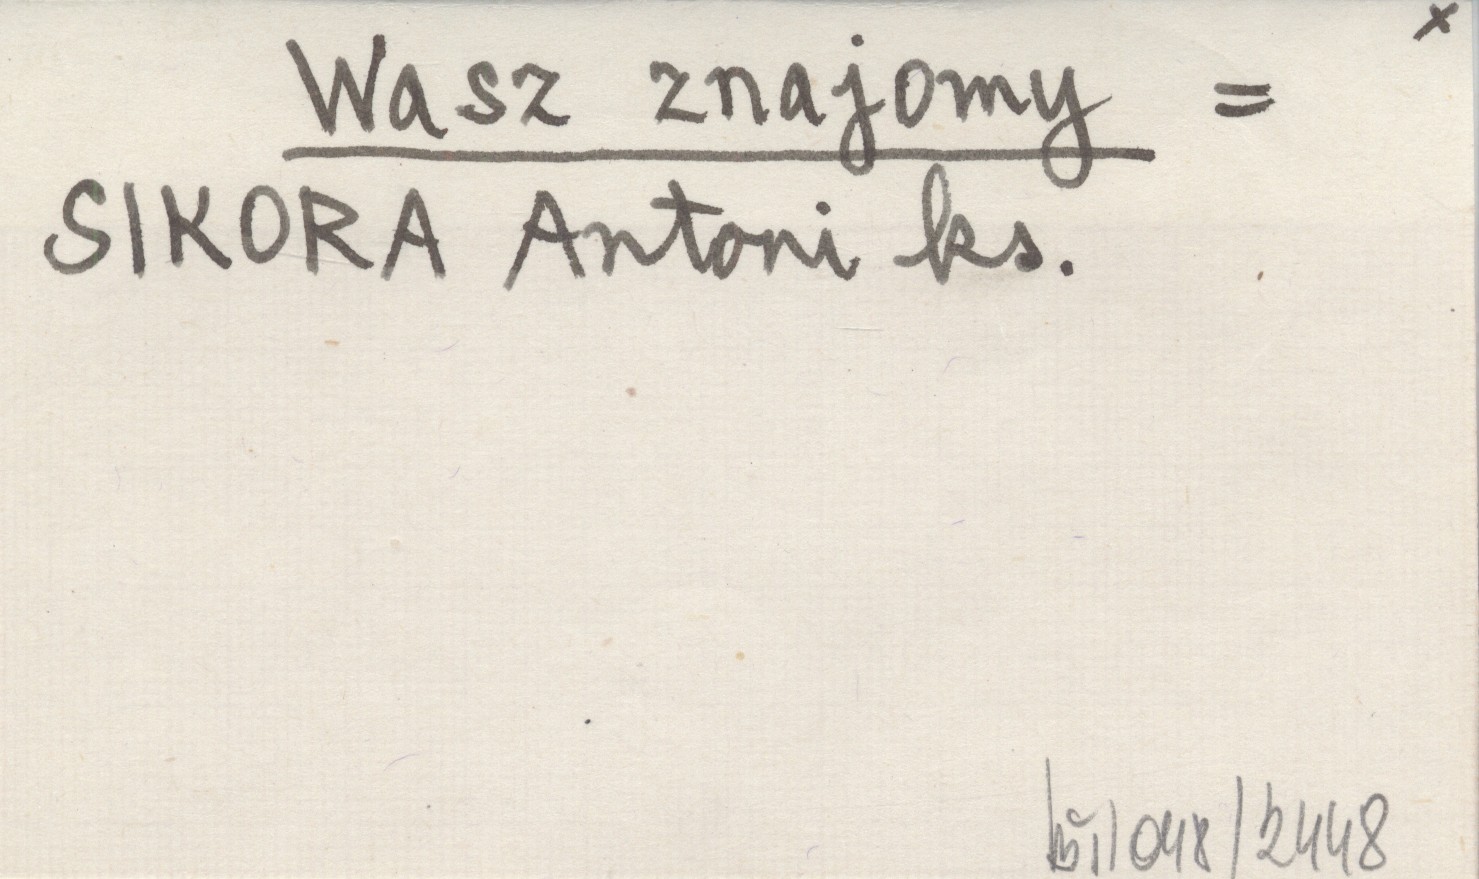 x
Wasz znajomy =
SIKORA Antoni ks.
048/2448